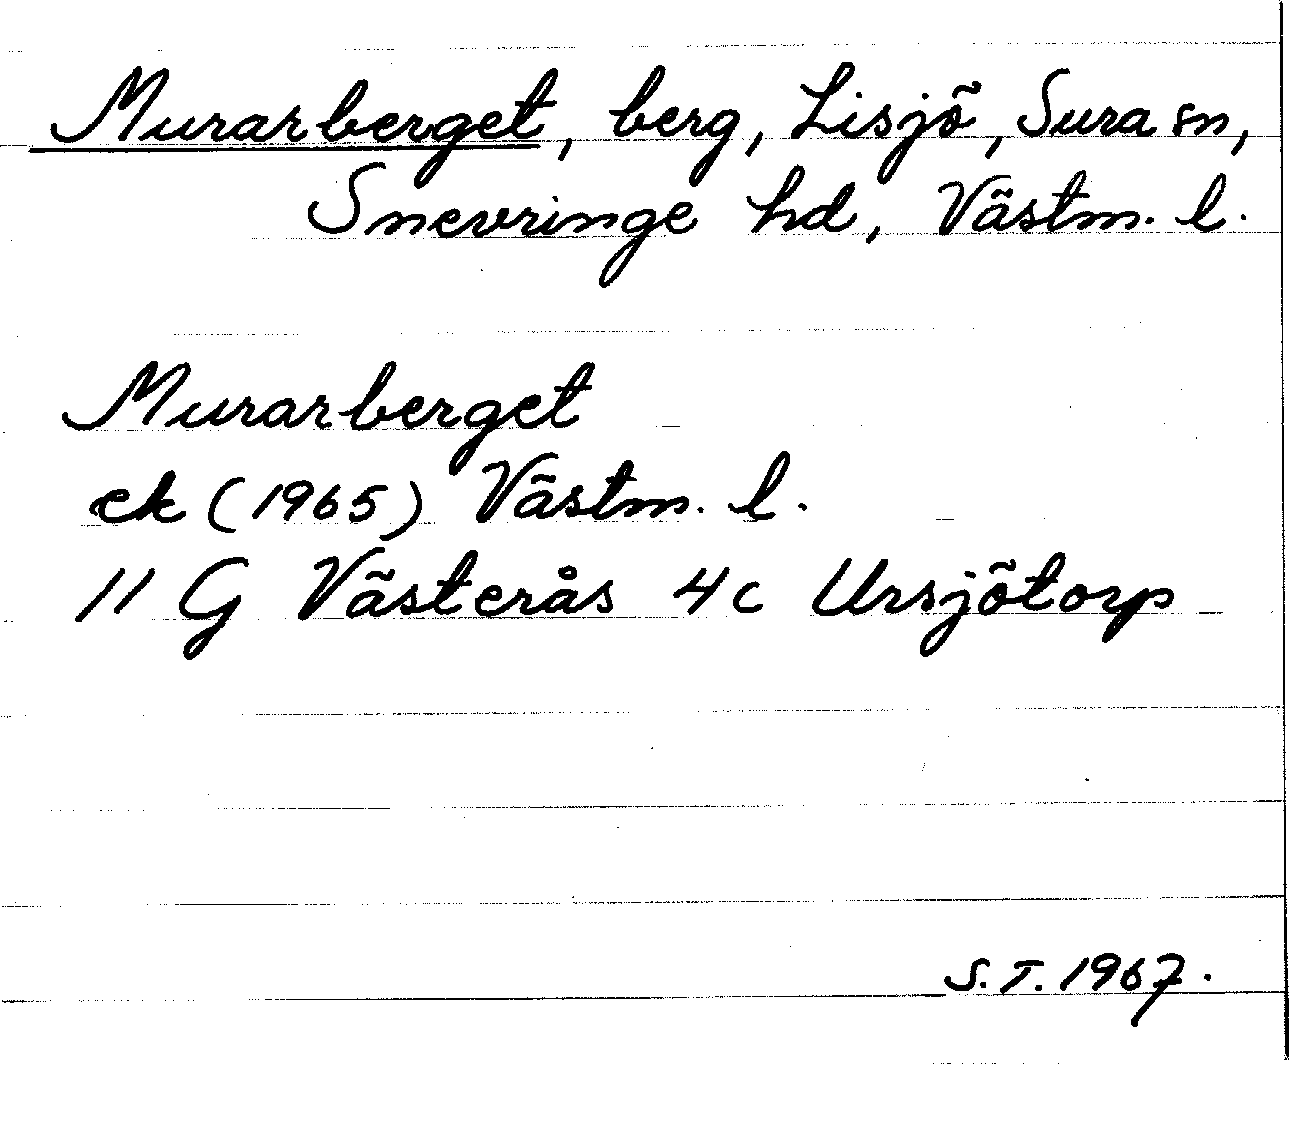 Murarberget, berg, Lisjö, Sura sn,
Snevringe hd, Västm. l.
Murarberget
ek (1965) Västm. l.
11 G Västerås 4c Ursjötorp
S.T. 1967.